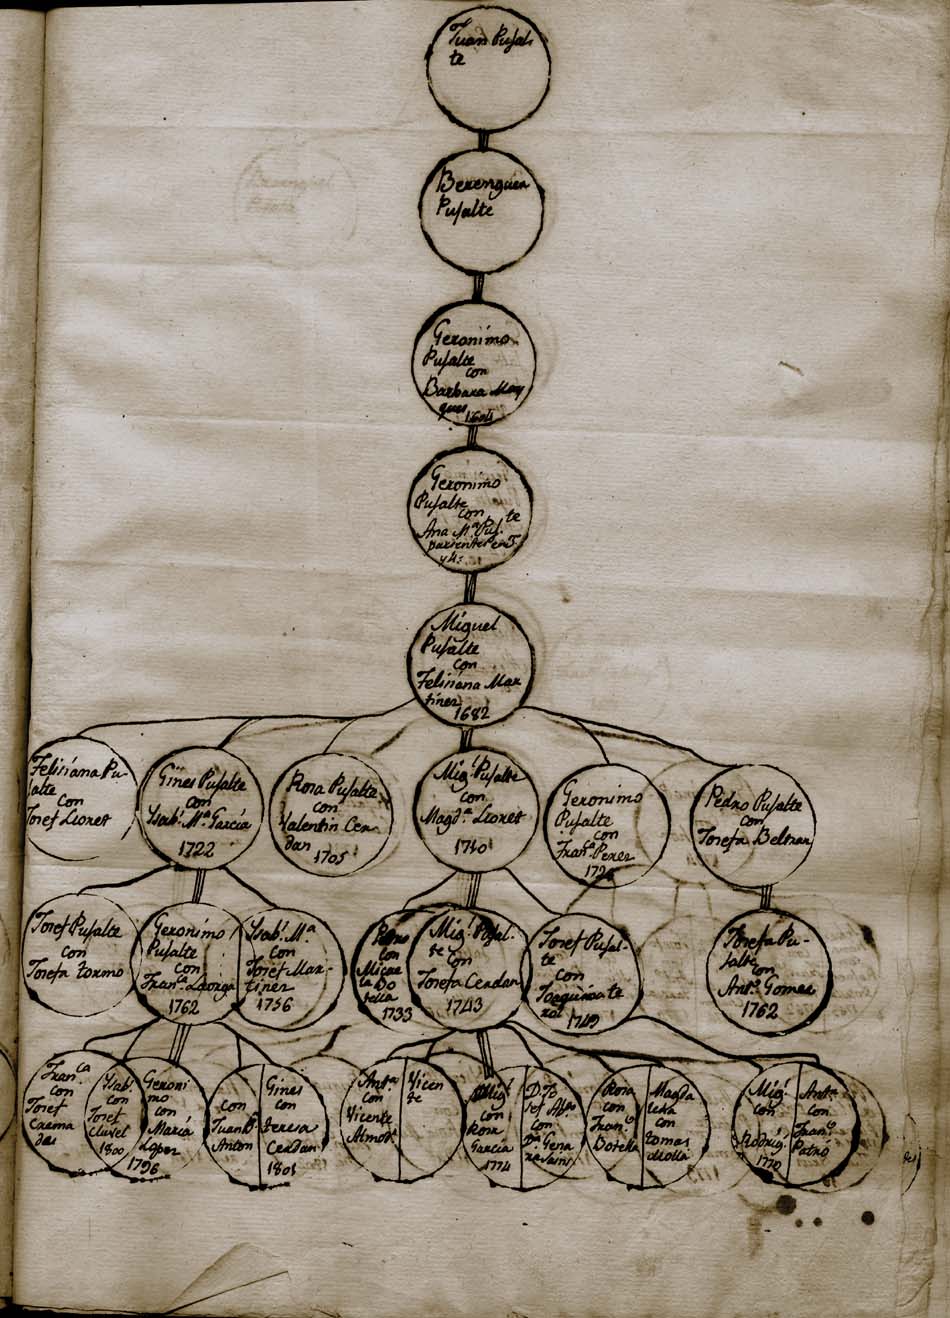 Juan Pusal-
te
Berenguer
Pusalte
Geronimo
Pusalte
con
Barbara May
ques 1604
Geronimo
Pusalte
con
Ana Mª Pus.te
parientes en 3
y 4:
Miguel
Pusalte
con
Felisiana Mar
tines
1682
Felisiana Pu-
salte
con
Josef Llores
Gines Pusalte
con
Ysab.l Mª Garcia
1722
Rosa Pusalte
con
Valentin Cer-
dan 1705
Mig.l Pusalte
con
Magd.ª Llores
1710
Geronimo
Pusalte
con
Fran.ª Perez
Pedro Pusalte
con
Josefa Beltran
Josef Pusalte
con
Josefa Tormo
Geronimo
Pusalte
con
Fran.ca
1762
Ysab.l Mª
con
Josef Mar-
tines
1756
con
Micae
la Bo
tella
1733
Mig.l Pusal-
te
con
Josefa Cerdan
1743
Josef Pusal-
te
con
Joaquina te
rol
1749
Josefa Pu-
salte
con
Ant.º Gomes
1762
Fran.ca
con
Josef
Carama
Ysab.l
con
Josef
1800
Geroni
mo
con
Maria
Lopes
1796
con
Juan Bª
Anton
Gines
con
teresa
Cerdan
1801
Ant.ª
con
Vicente
Almod.r
Vicen
te
Mig.l
con
Rosa
Garcia
1774
con
Rosa
con
Fran.º
Botella
Magda
lena
con
tomas
Molla
Mig.l
con
Rodrig.
1770
Ant.ª
con
Fran.º